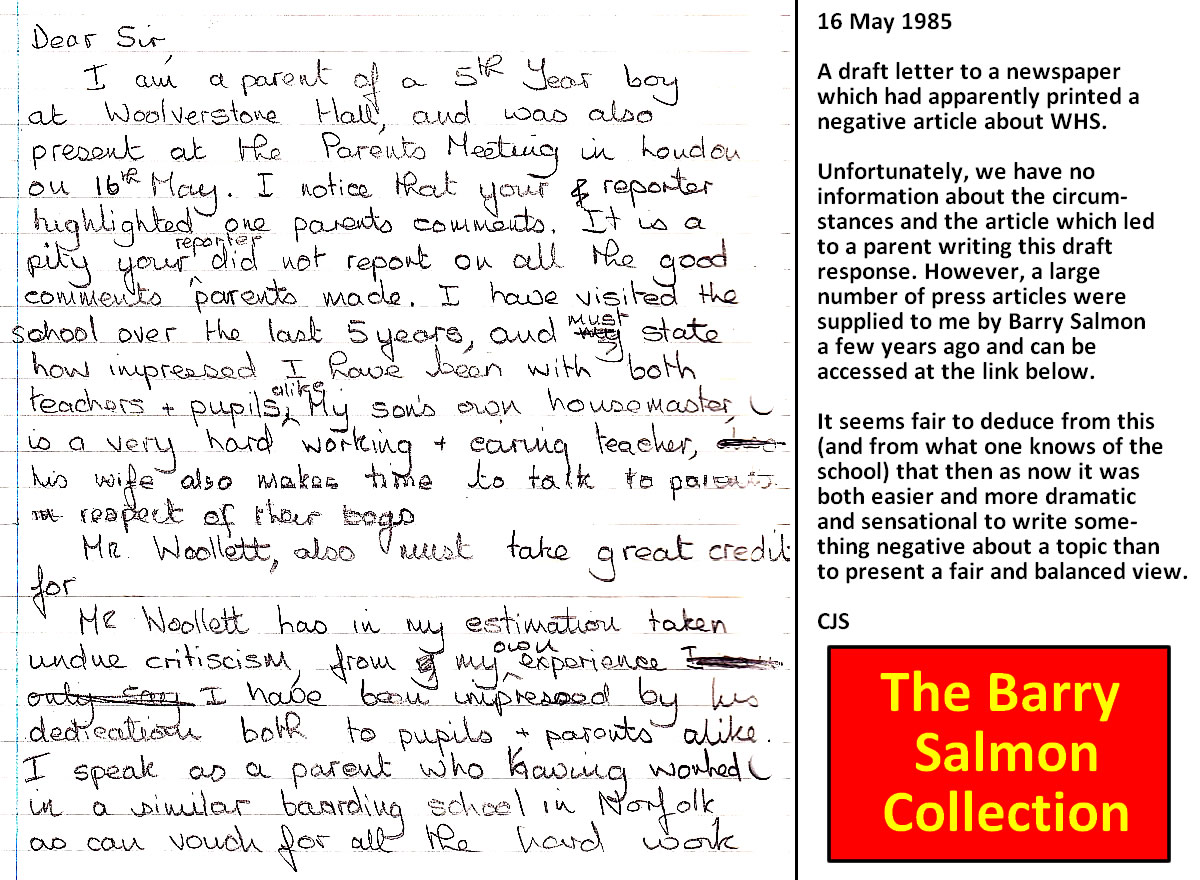 Dear Sir
I am a parent of a 5th Year boy
at Woolverstone Hall, and was also
present at the Parents Meeting in London
on 16th May. I notice that your reporter
highlighted one parents comments. It is a
reporter
pity your did not report on all the good
comments parents made. I have visited the
school over the last 5 years, and
must
state
how impressed I have been with both
alike
teachers + pupils, My son's own housemaster,
is a very hard working + caring teacher,
his wife also makes time to talk to parents
respect of their boys
Mr. Woollett, also must take great credit
for
Mr Woollett has in my estimation taken
own
undue critiscism, from my experience I
only say I have been impressed by his
dedication both to pupils + parents alike.
I speak as a parent who having worked
in a similar boarding school in Norfolk
as can vouch for all the hard work
16 May 1985
A draft letter to a newspaper
which had apparently printed a
negative article about WHS.
Unfortunately, we have no
information about the circum-
stances and the article which led
to a parent writing this draft
response. However, a large
number of press articles were
supplied to me by Barry Salmon
a few years ago and can be
accessed at the link below.
It seems fair to deduce from this
(and from what one knows of the
school) that then as now it was
both easier and more dramatic
and sensational to write some-
thing negative about a topic than
to present a fair and balanced view.
CJS
The Barry
Salmon
Collection